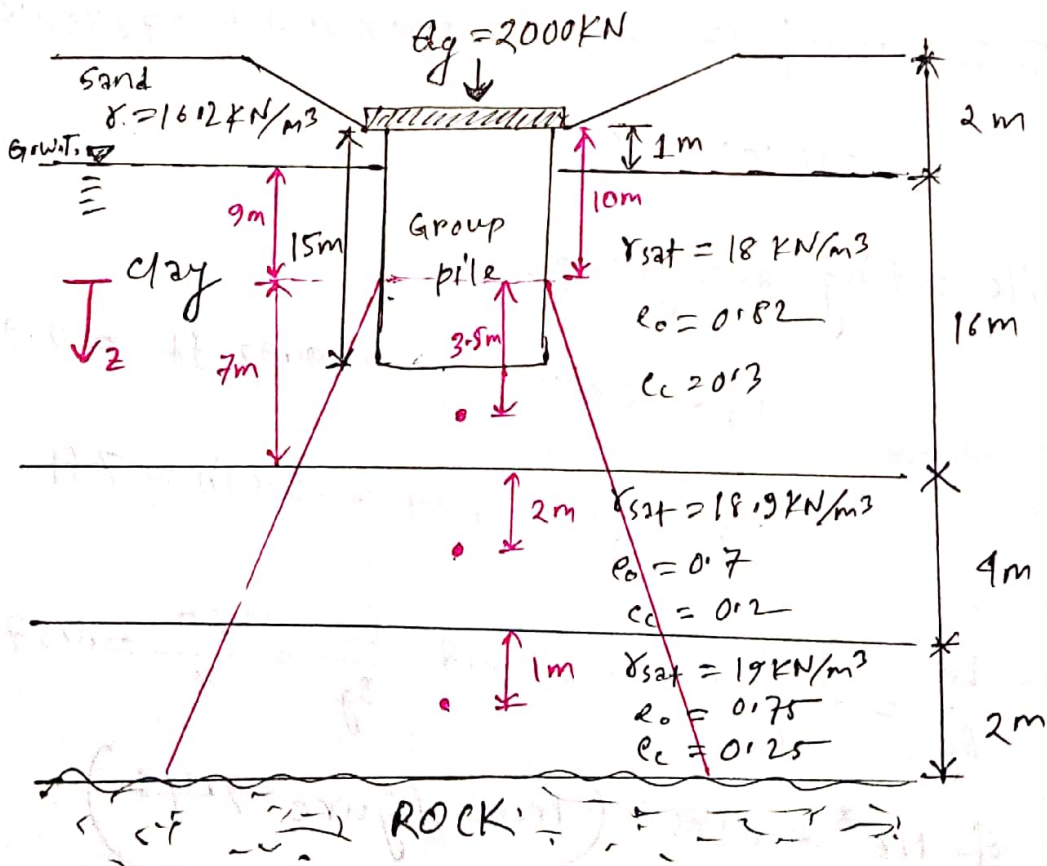 Qg = 2000KN
Sand
γ = 16.2 KN/m3
G.W.T.
2m
1m
9m
10m
15m
Group
pile
clay
γsat = 18 KN/m3
e0 = 0.82
Cc = 0.3
16m
3.5m
Z
7m
2m
γsat = 18.9 KN/m3
e0 = 0.7
cc = 0.2
4m
1m
γsat = 19 KN/m3
e0 = 0.75
Cc = 0.25
2m
ROCK